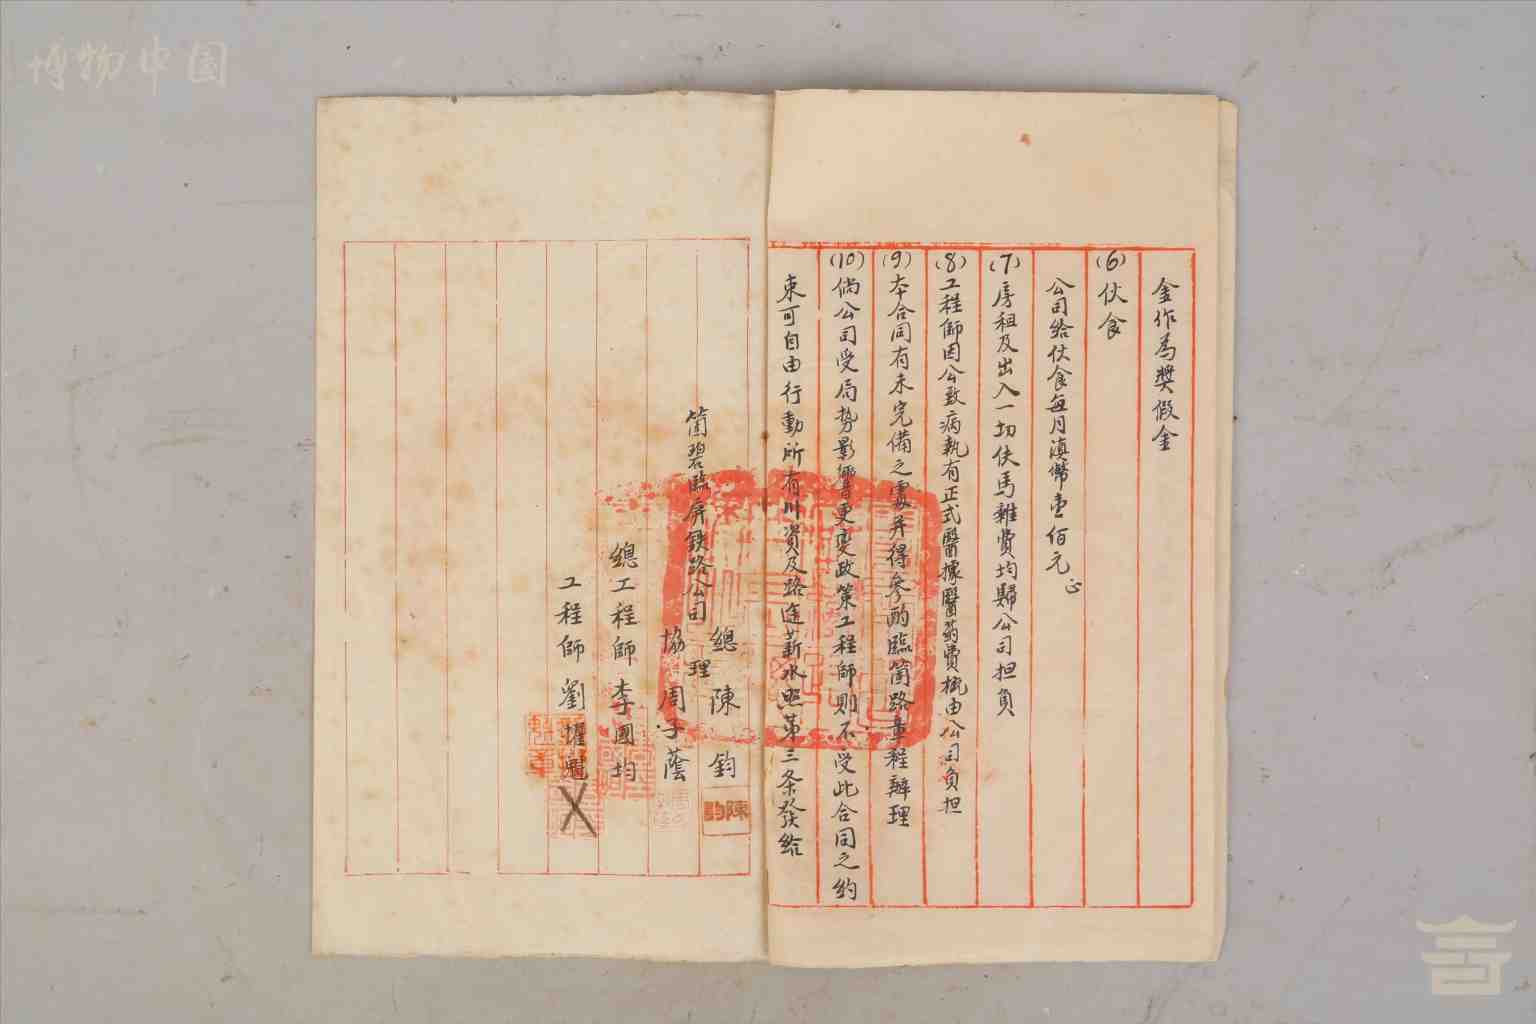 金作為獎假金
(6)伙食
公司給伙食每月滇幣壹佰元正
(7)房租及出入一切伕馬雜費均歸公司担負
(8)工程師因公致病執有正式醫據醫药費概由公司負担
(9)本合同有未完備之處并得參酌臨箇路章程辦理
(10)倘公司受局勢影響更變政策工程師則不受此合同之約
束可自由行動所有川資及路途薪水照第三条發給
箇碧臨屏鉄路公司
總理 陳鈞
協理 周子蔭
總工程師 李國均
工程師 劉燿
陳鈞
博物中国